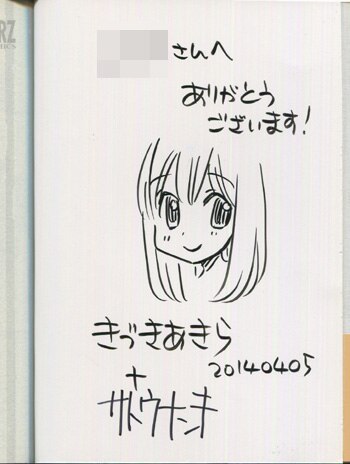 さんへ
ありがとう
ございます!
きづきあきら
20140405
+
サトウナンキ